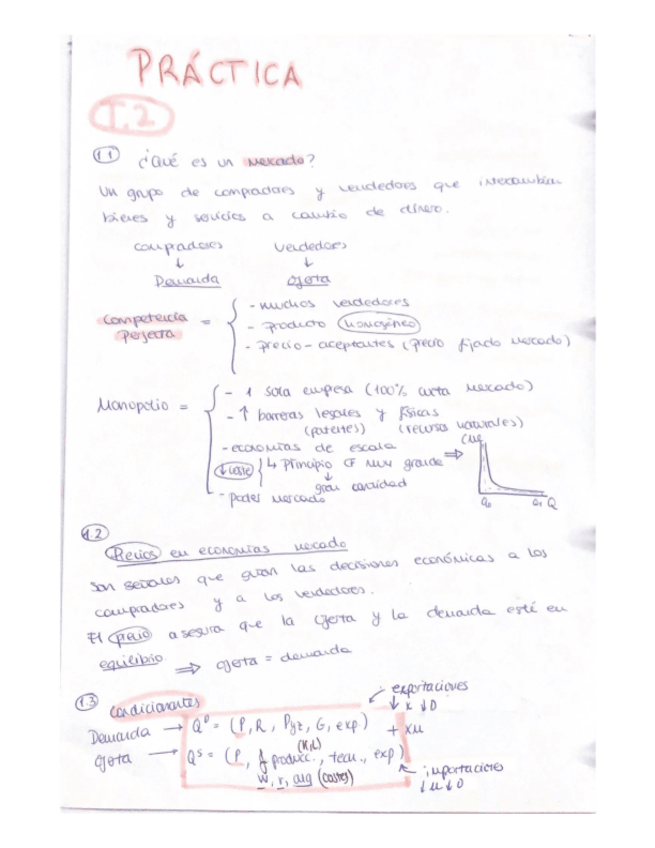 PRÁCTICA
T.2
1.1 ¿Qué es un mercado?
Un grupo de compradores y vendedores que intercambian
bienes y servicios a cambio de dinero.
compradores vendedores
↓ ↓
Demanda Oferta
Competencia Perfecta = { - muchos vendedores
- producto homogéneo
- precio-aceptantes (precio fijado mercado)
Monopolio = { - 1 sola empresa (100% cuota mercado)
- ↑ barreras legales y físicas
(patentes) (recursos naturales)
- economías de escala
↳ Principio CF muy grande ⇒
↓
gran cantidad
- poder mercado
Q
1.2
Precios en economías mercado
Son señales que guían las decisiones económicas a los
compradores y a los vendedores.
El precio asegura que la oferta y la demanda esté en
equilibrio ⇒ oferta = demanda
1.3 Condicionantes
exportaciones
↓ X ↓ D
Demanda → Qᴰ = (P, R, Pyz, G, exp) + XM
(K,L)
Oferta → Qˢ = (P, f producc., tecn., exp)
w, r, (costes)
importaciones
↓ M ↓ O